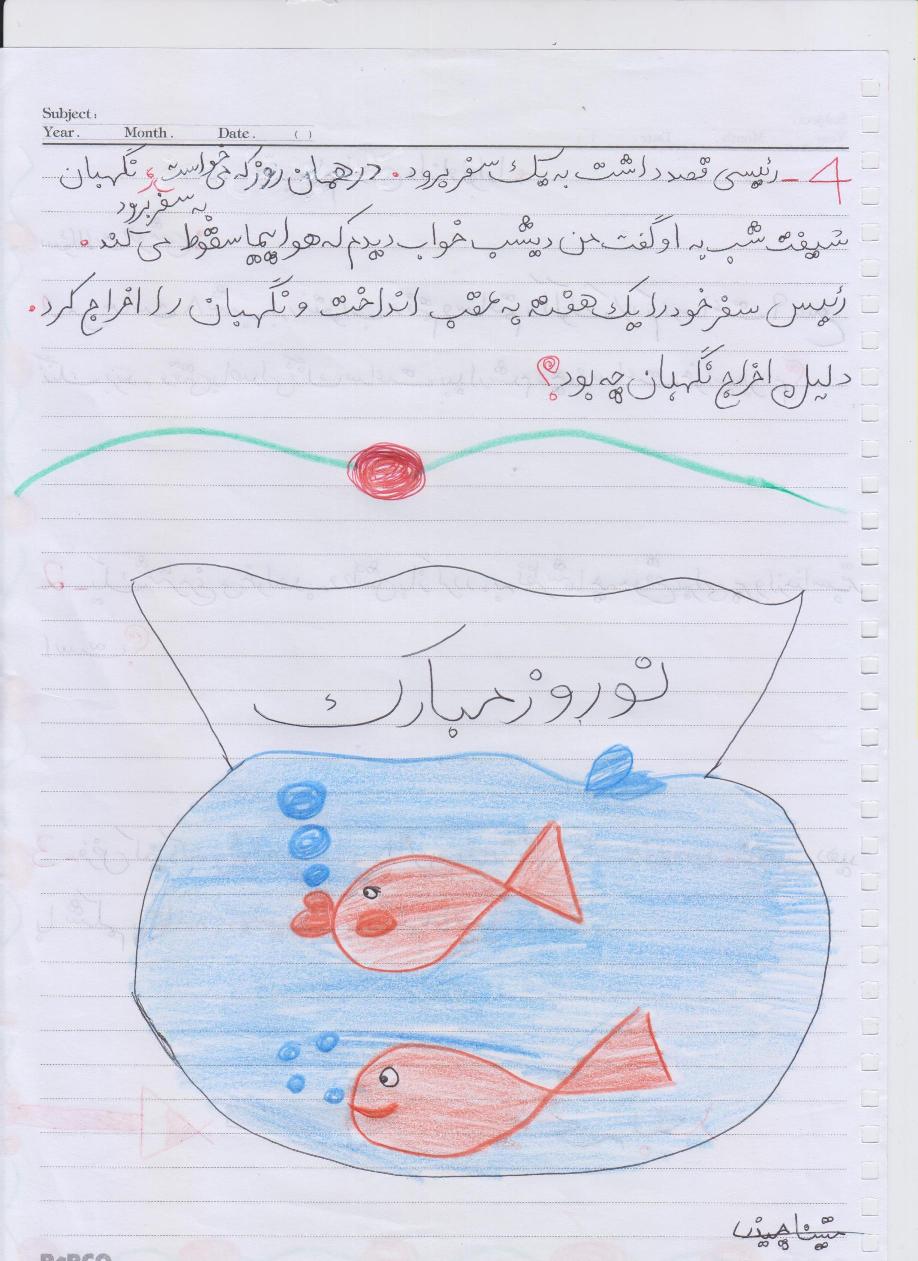 Subject:
Year. Month. Date. ( )
4- رئیسی قصد داشت به یک سفر برود. در همان روز که می خواست نگهبان
به سفر برود
شیفت شب به او گفت من دیشب خواب دیدم که هواپیما سقوط می کند.
رئیس سفر خود را یک هفته به عقب انداخت و نگهبان را اخراج کرد.
دلیل اخراج نگهبان چه بود؟
نوروز مبارک